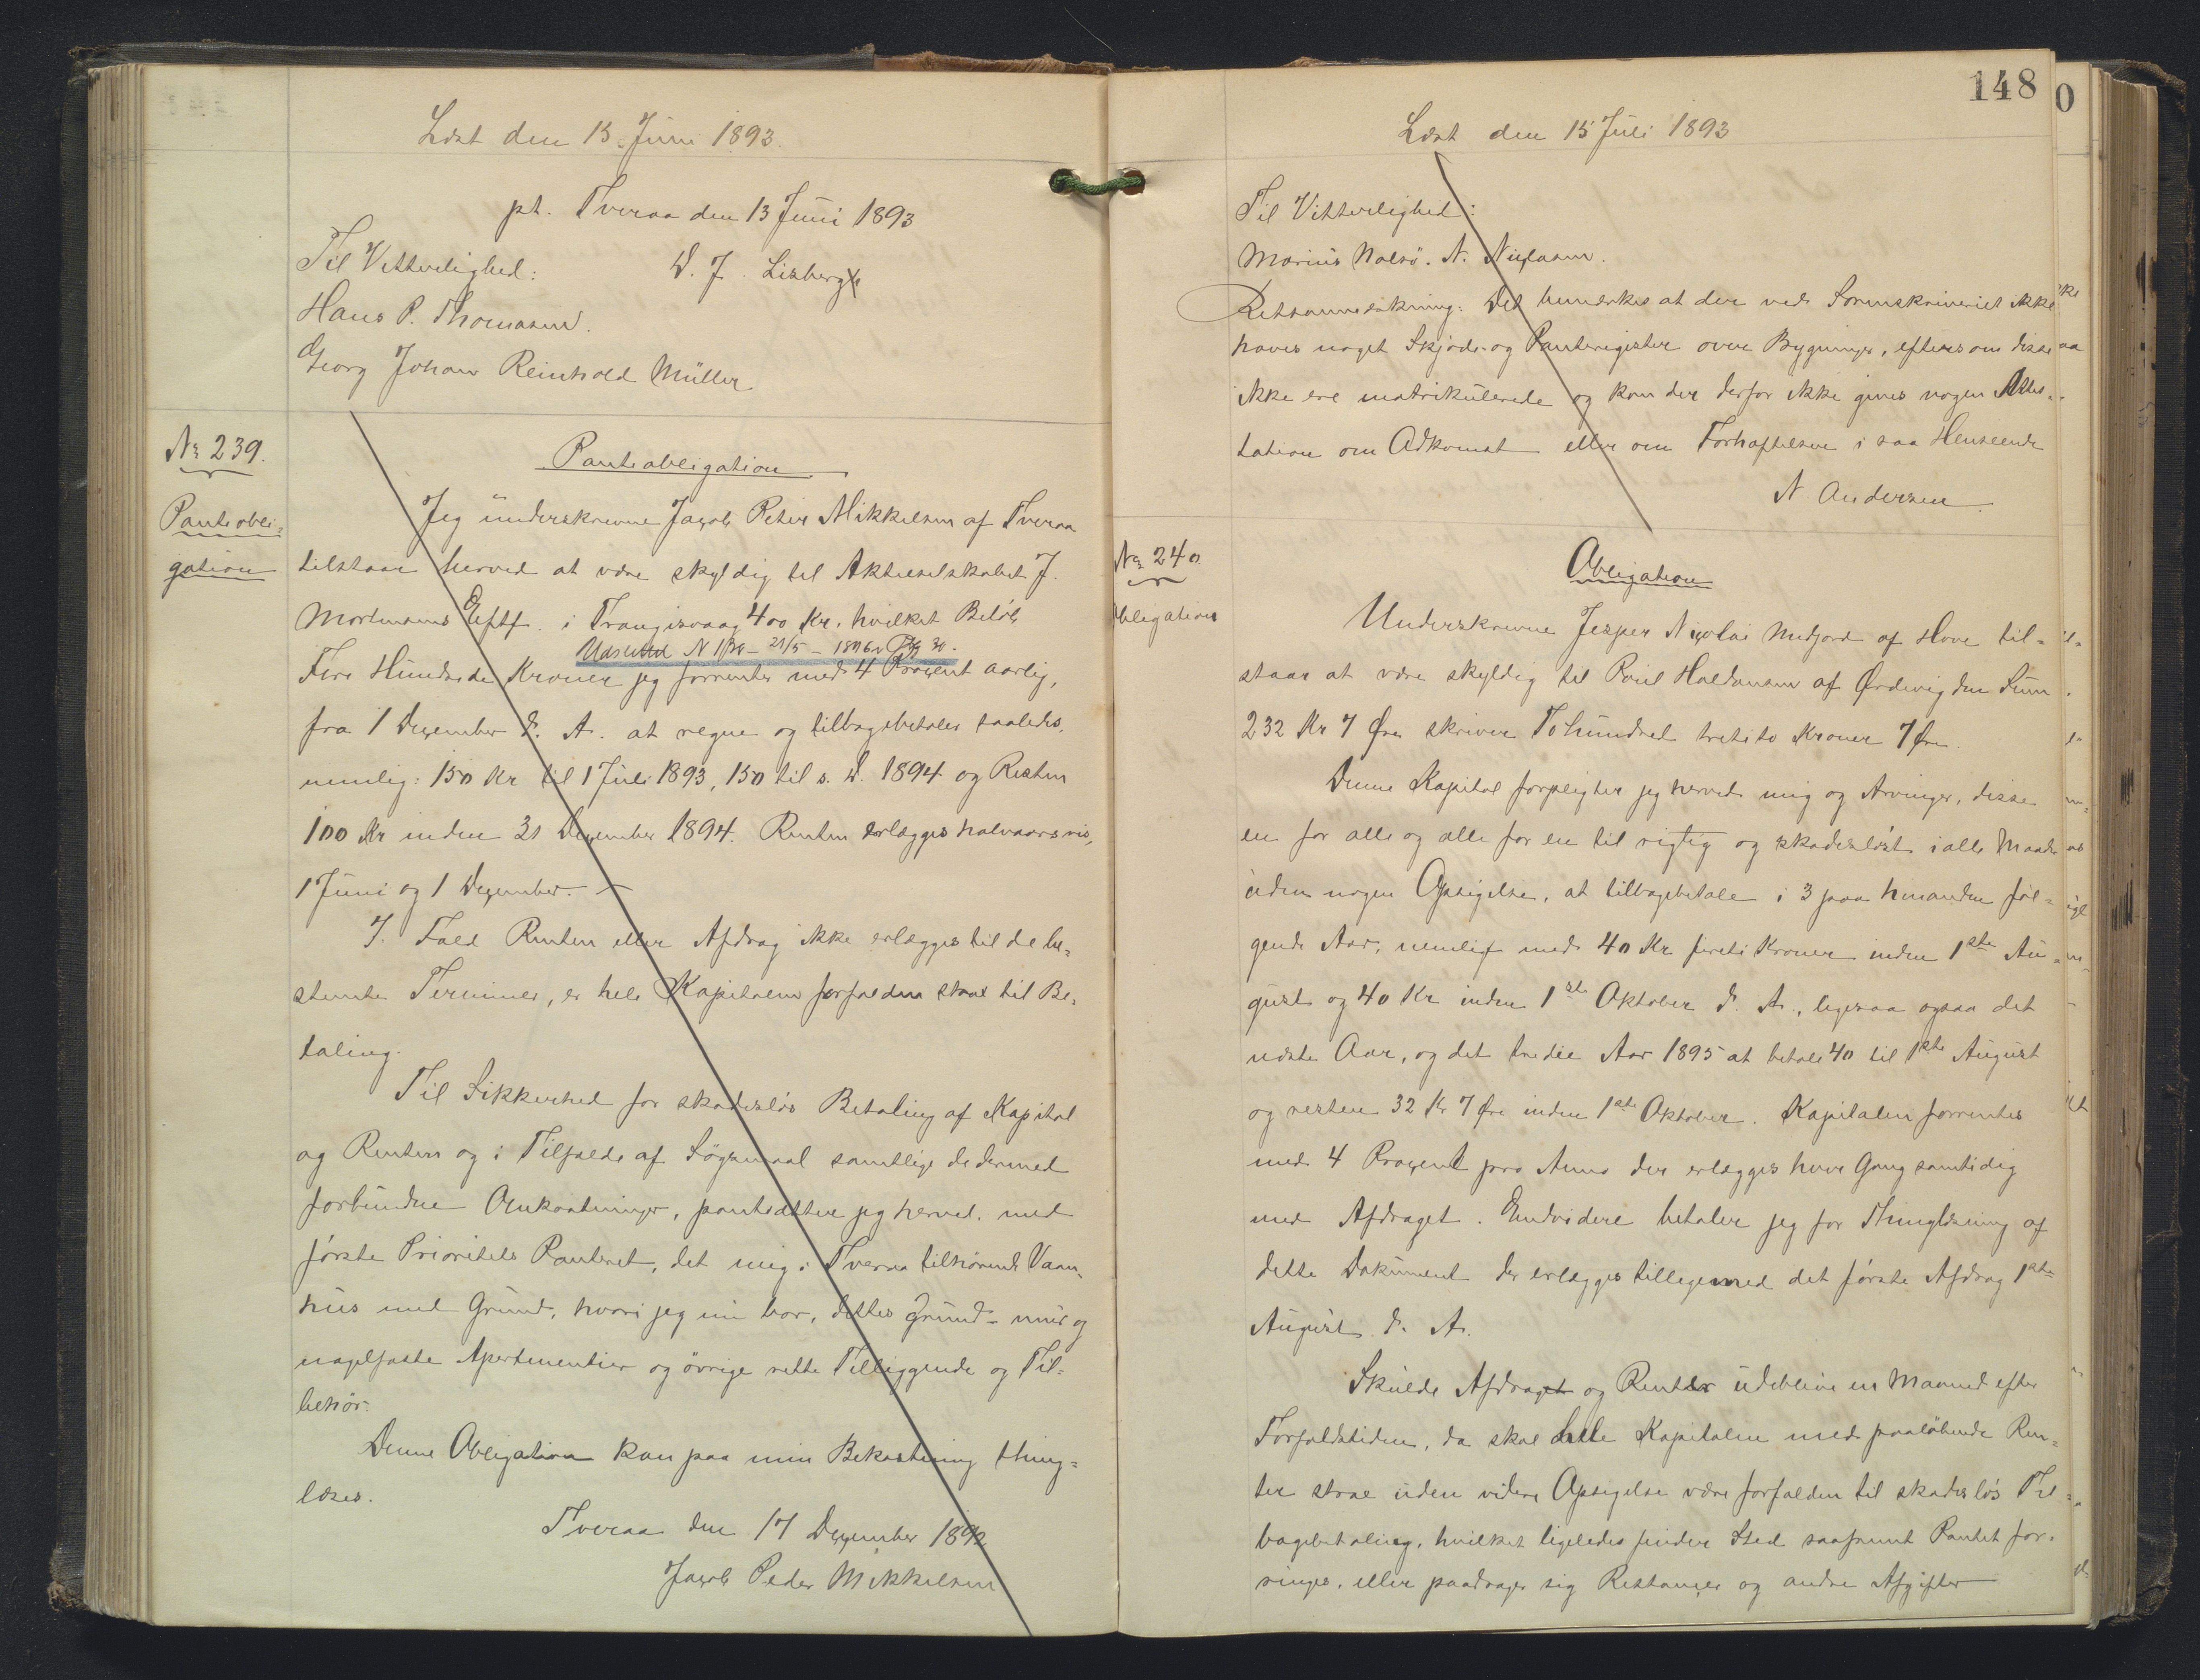 Læst den 13. Juni 1893.
pt. Tveraa den 13 Juni 1893
Til Vitterlighed: D. J. Lisberg
Hans P. Thomasen.
Georg Johan Reinhold Müller.
No 239.
Panteobli=
gation
Panteobligation
Jeg underskrevne Jacob Peter Mikkelsen af Tveraa
tilstaar herved at være skyldig til Aktieselskabet J.
Mortensens Eftf. i Trangisvaag 400 Kr, hvilket Beløb
Udslettet 21/5 - 1896
Fire Hundrede Kroner jeg forrenter med 4 Procent aarlig,
fra 1 December d. A. at regne og tilbagebetaler saaledes,
nemlig: 150 Kr til 1 Juli 1893, 150 til s. D. 1894 og Resten
100 Kr inden 31 December 1894. Renten erlægges halvaarsvis,
1 Juni og 1 December. —
I Fald Renten eller Afdrag ikke erlægges til de be=
stemte Terminer, er hele Kapitalen forfalden strax til Be=
taling.
Til Sikkerhed for skadesløs Betaling af Kapital
og Renten og i Tilfælde af Søgsmaal samtlige de dermed
forbundne Omkostninger, pantsætter jeg herved, med
første Prioritets Panteret, det mig i Tveraa tilhørende Vaan=
hus med Grund, hvori jeg nu bor, dettes grund- mur og
nagelfaste Apertinentier og øvrige rette Tilliggende og Til=
behør.
Denne Obligation kan paa min Bekostning thing=
læses.
Tveraa den 17 December 1892
Jacob Peder Mikkelsen
148
0
Læst den 15 Juli 1893
Til Vitterlighed:
Marius Nolsö. N. Niclasen.
Retsanmærkning: Det bemærkes at der ved Sorenskriveriet ikke
haves noget Skjøde- og Panteregister over Bygninger, eftersom disse
ikke ere matrikulerede og kan der derfor ikke gives nogen Attes=
tation om Adkomst eller om Forhæftelser i saa Henseende
N Andersen.
No 240
Obligation
Obligation
Underskrevne Jesper Nicolai Midjord af Hove til=
staar at være skyldig til Poul Haldansen af Ørdevig den Sum
232 Kr 7 Øre skriver To hundred tretito Kroner 7 Øre.
Denne Kapital forpligter jeg herved mig og Arvinger, disse
en for alle og alle for en til rigtig og skadesløst i alle Maade
uden nogen Opsigelse, at tilbagebetale i 3 paa hinanden føl=
gende Aar, nemlig med 40 Kr fireti Kroner inden 1ste Au=
gust og 40 Kr inden 1ste Oktober d. A., ligesaa ogsaa det
næste Aar, og det tredie Aar 1895 at betale 40 til 1ste August
og resten 32 Kr 7 Øre inden 1ste Oktober. Kapitalen forrentes
med 4 Procent pro Anno der erlægges hver Gang samtidig
med Afdraget. Endvidere betaler jeg for Thinglæsning af
dette Dokument der erlægges tilligemed det første Afdrag 1ste
August d. A.
Skulde Afdraget og Renter udeblive en Maaned efter
Forfaldstiden, da skal hele Kapitalen med paaløbende Ren=
ter strax uden videre Opsigelse være forfalden til skadesløs Til=
bagebetaling, hvilket ligeledes finder Sted saafremt Pantet for=
ringes, eller paadrager sig Restancer og andre Afgifter